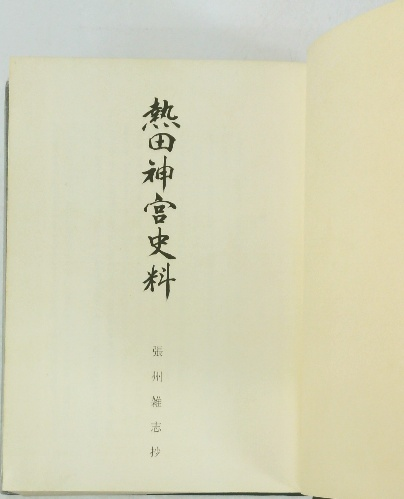 熱田神宮史料
張州雑志抄